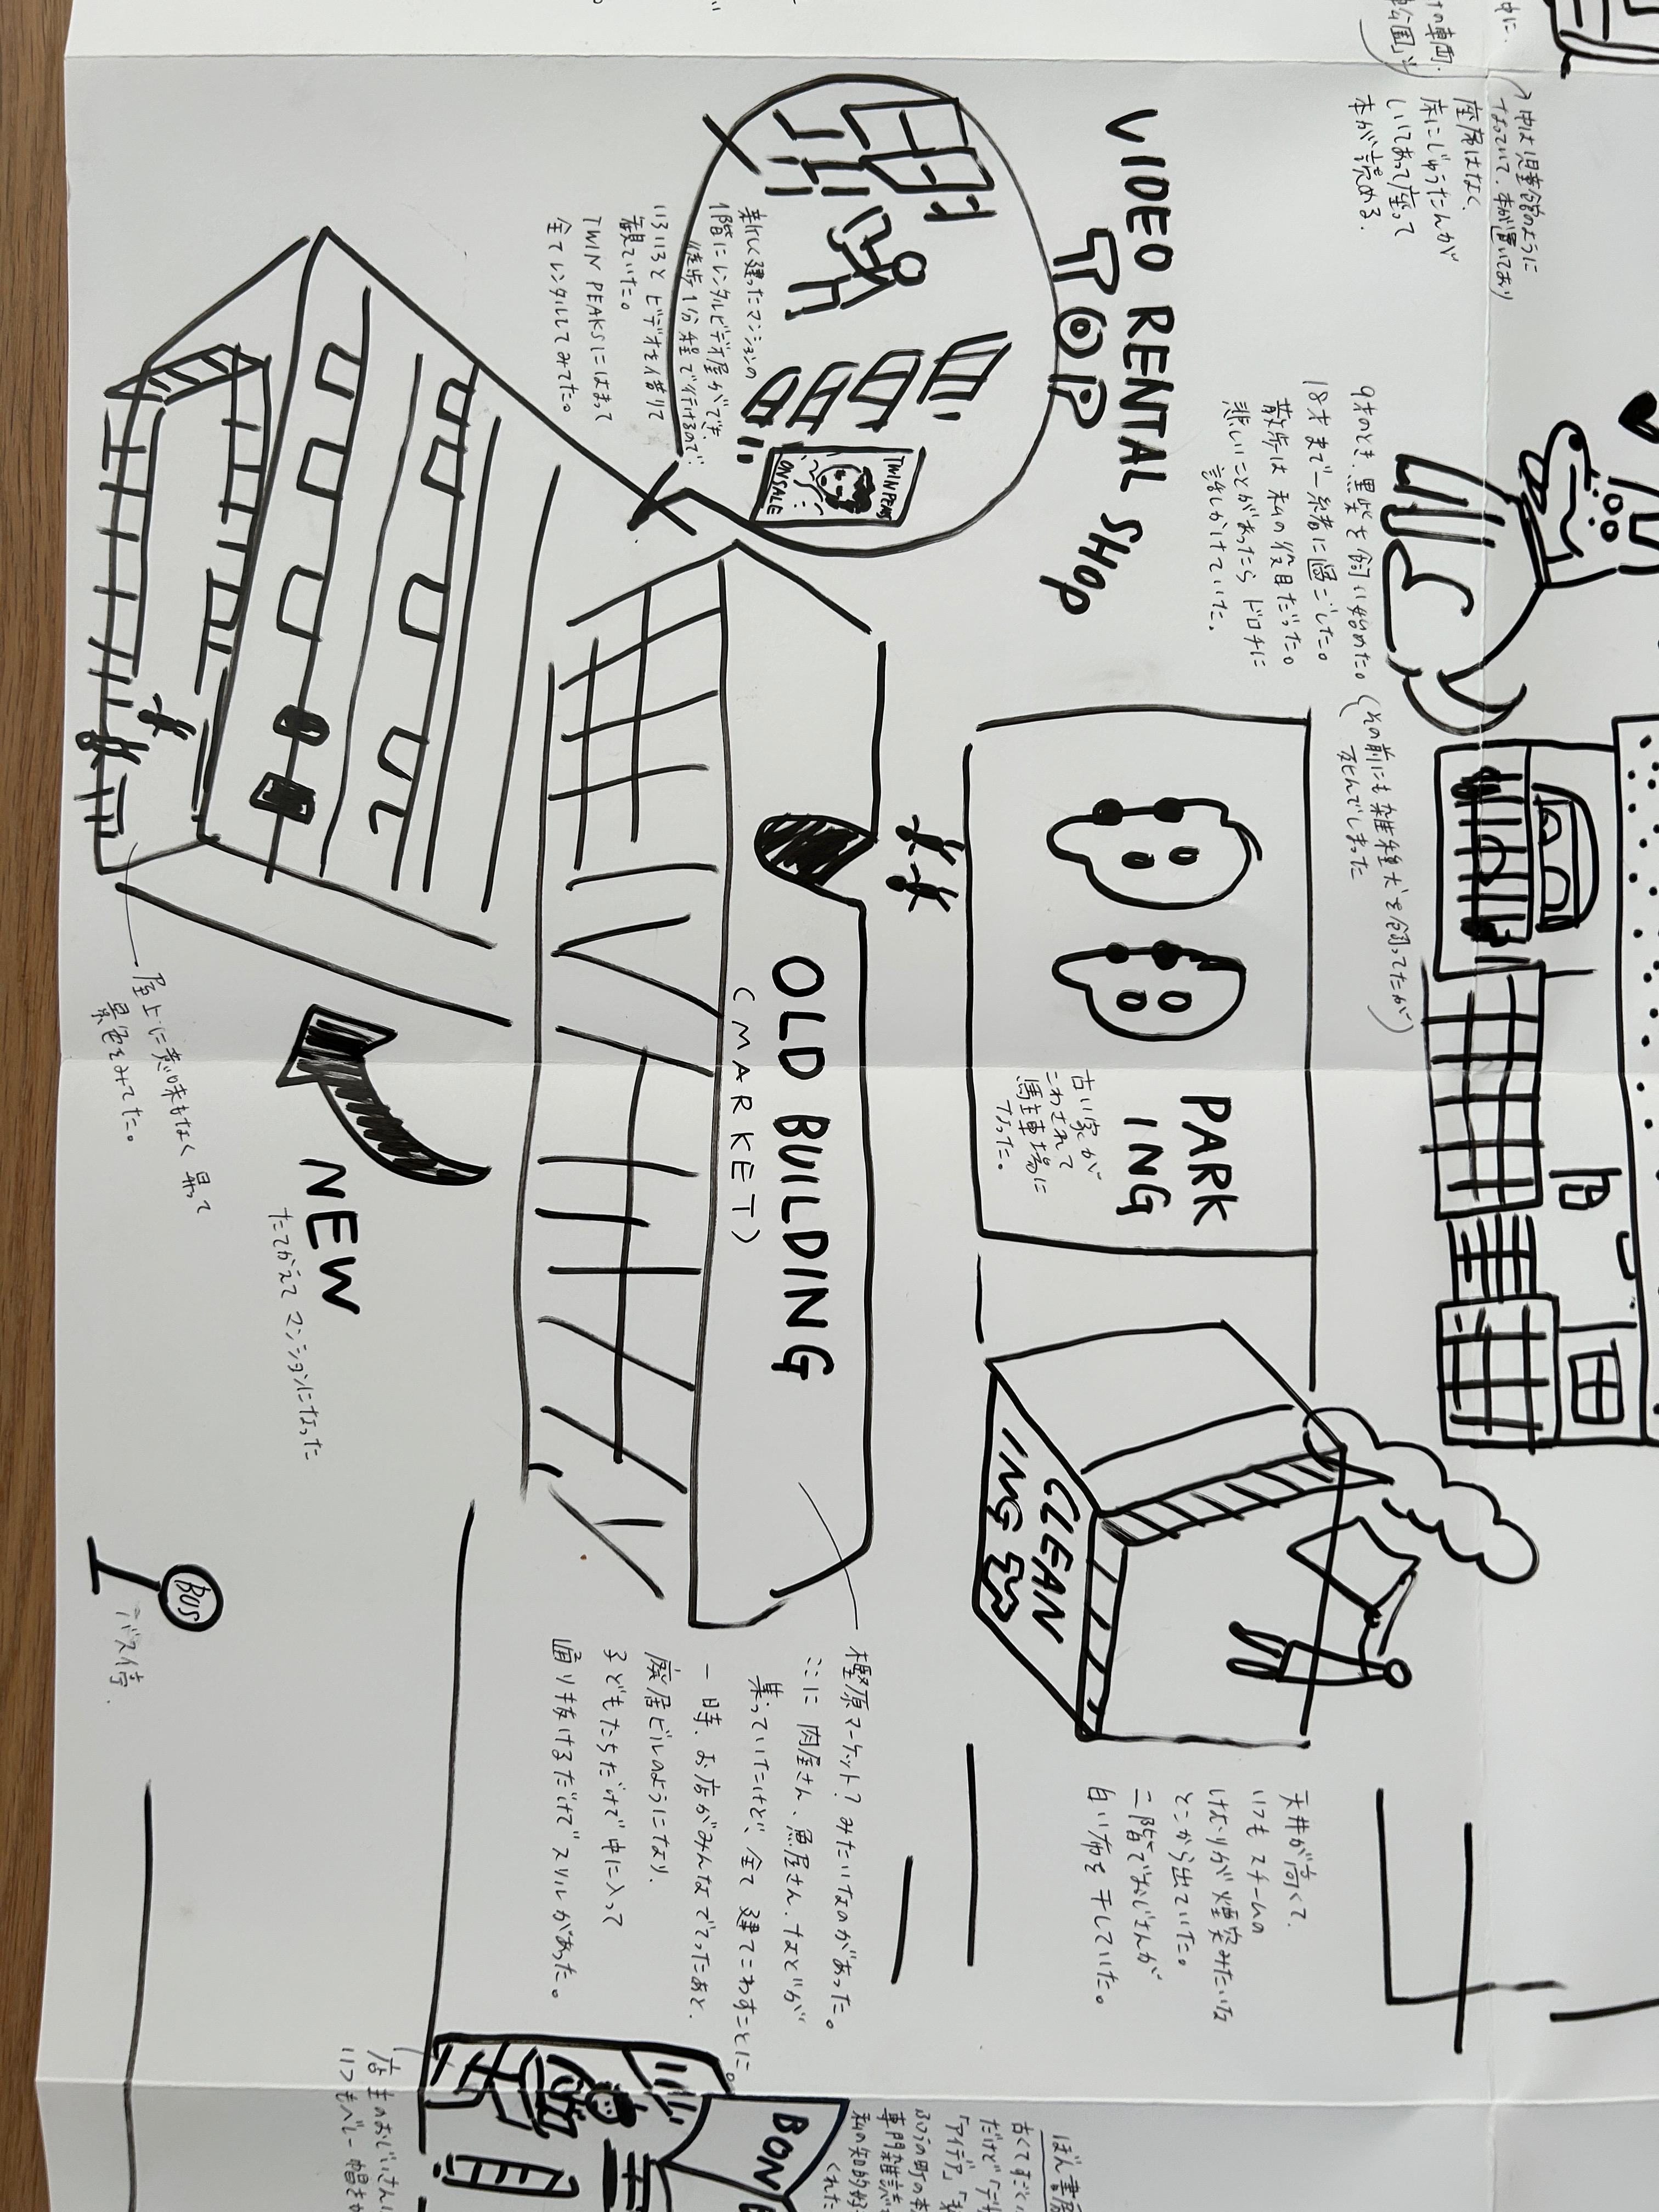 中は児童館のように
なっていて、本が置いており
座席はなく、
床にじゅうたんが
しいてあって座って
本が読める。
VIDEO RENTAL SHOP
TOP
TWIN PEAKS
ON SALE
新しく建ったマンションの
1階にレンタルビデオ屋ができ、
徒歩1分程で行けるので
いろいろとビデオを借りて
観ていた。
TWIN PEAKSにはまって
全てレンタルしてみてた。
9才のとき、黒柴を飼い始めた。
(その前にも雑種犬を飼ってたが
死んでしまった
18才まで一緒に過ごした。
散歩は私の役目だった。
悲しいことがあったらドロチに
話しかけていた。
PARK
ING
古い家が
こわされて
駐車場に
なった。
OLD BUILDING
(MARKET)
NEW
たてかえてマンションになった
屋上に意味もなく昇って
景色をみてた。
CLEAN
ING
天井が高くて、
いつもスチームの
けむりが煙突みたいな
とこから出ていた。
二階でおじさんが
白い布を干していた。
樫原マーケット?みたいなのがあった。
ここに肉屋さん、魚屋さん、などが
集っていたけど、全て建てこわすことに。
一時、お店がみんなでてったあと、
廃居ビルのようになり、
子どもたちだけで中に入って
通り抜けるだけでスリルがあった。
BUS
バス停
BON
ぼん書房
古くてすごく
だけど「デザ
「アイデア」
ふつうの町の本
専門雑誌
私の知的好
くれた
店主のおじいさんは
いつもベレー帽をか